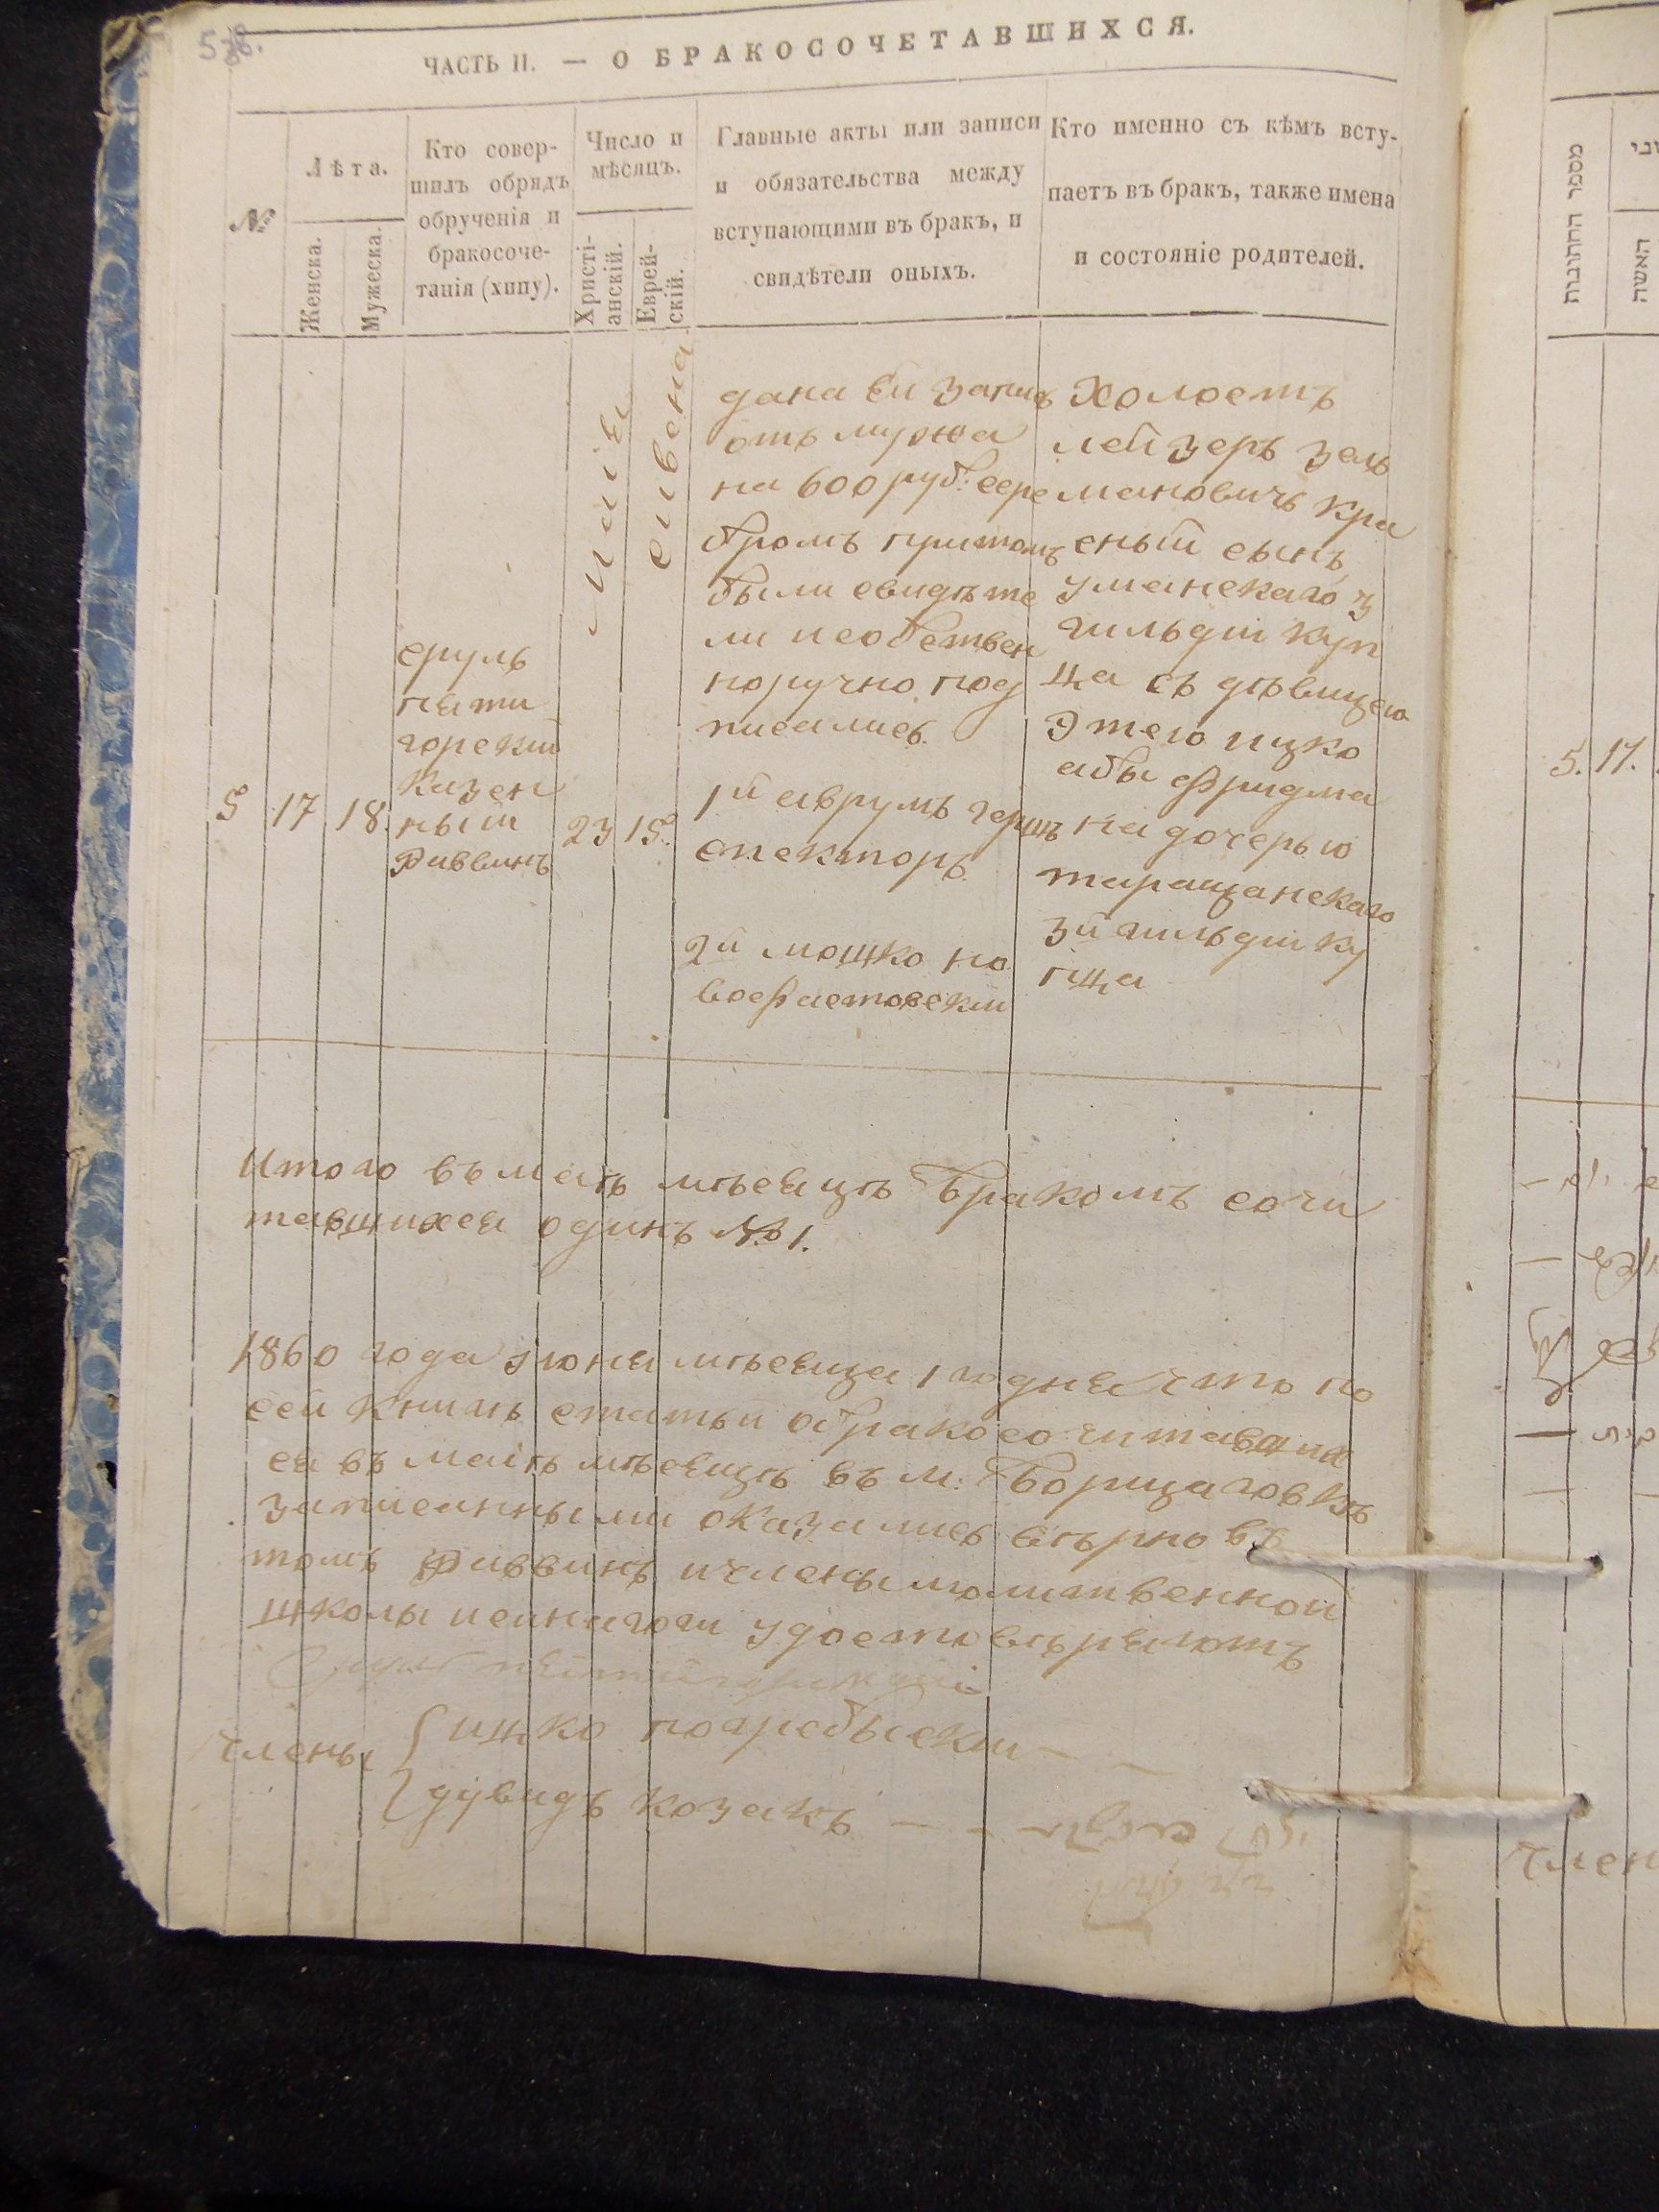 ЧАСТЬ II. — О БРАКОСОЧЕТАВШИХСЯ.
№
Лѣта.
Женска.
Мужеска.
Кто совер-
шилъ обрядъ
обрученія и
бракосоче-
танія (хипу).
Число и
мѣсяцъ.
Христі-
анскій.
Еврей-
скій.
Главные акты или записи
и обязательства между
вступающими въ бракъ, и
свидѣтели оныхъ.
Кто именно съ кѣмъ всту-
паетъ въ бракъ, также имена
и состояніе родителей.
5
17
18
сруль
пяти
горскии
Казен
ный
Раввинъ
Маія
23
сивена
15.
дана Ей Запись
отъ мужа
на 600 руб: сере
бромъ притомъ
были свидѣте
ли и собствен
норучно под
писались.
1й аврумъ гершъ
спекторъ
2й мошко но
вофастовскии
Холостъ
лейзеръ зель
мановичъ Кра
сный сынъ
уманскаго 3
гильдіи Куп
ца съ дѣвицею
Этею ицко
абы Фридма
на дочерью
таращанскаго
3й гильдіи Ку
пца
Итого въ маѣ мѣсяцѣ бракомъ сочи
тавшихся одинъ № 1.
1860 года Іюня мѣсяца 1 го дня что по
сей Книгѣ статьи о бракосочитавших
ся въ маѣ мѣсяцѣ въ м: Борщаговкѣ
записанными оказались вѣрно въ
томъ Раввинъ и члены молитвенной
школы и синагоги удостовѣряютъ
Члены
ицко погребыскии
дувидъ козакъ
מספר החתונות
האשה
5. 17.
Член